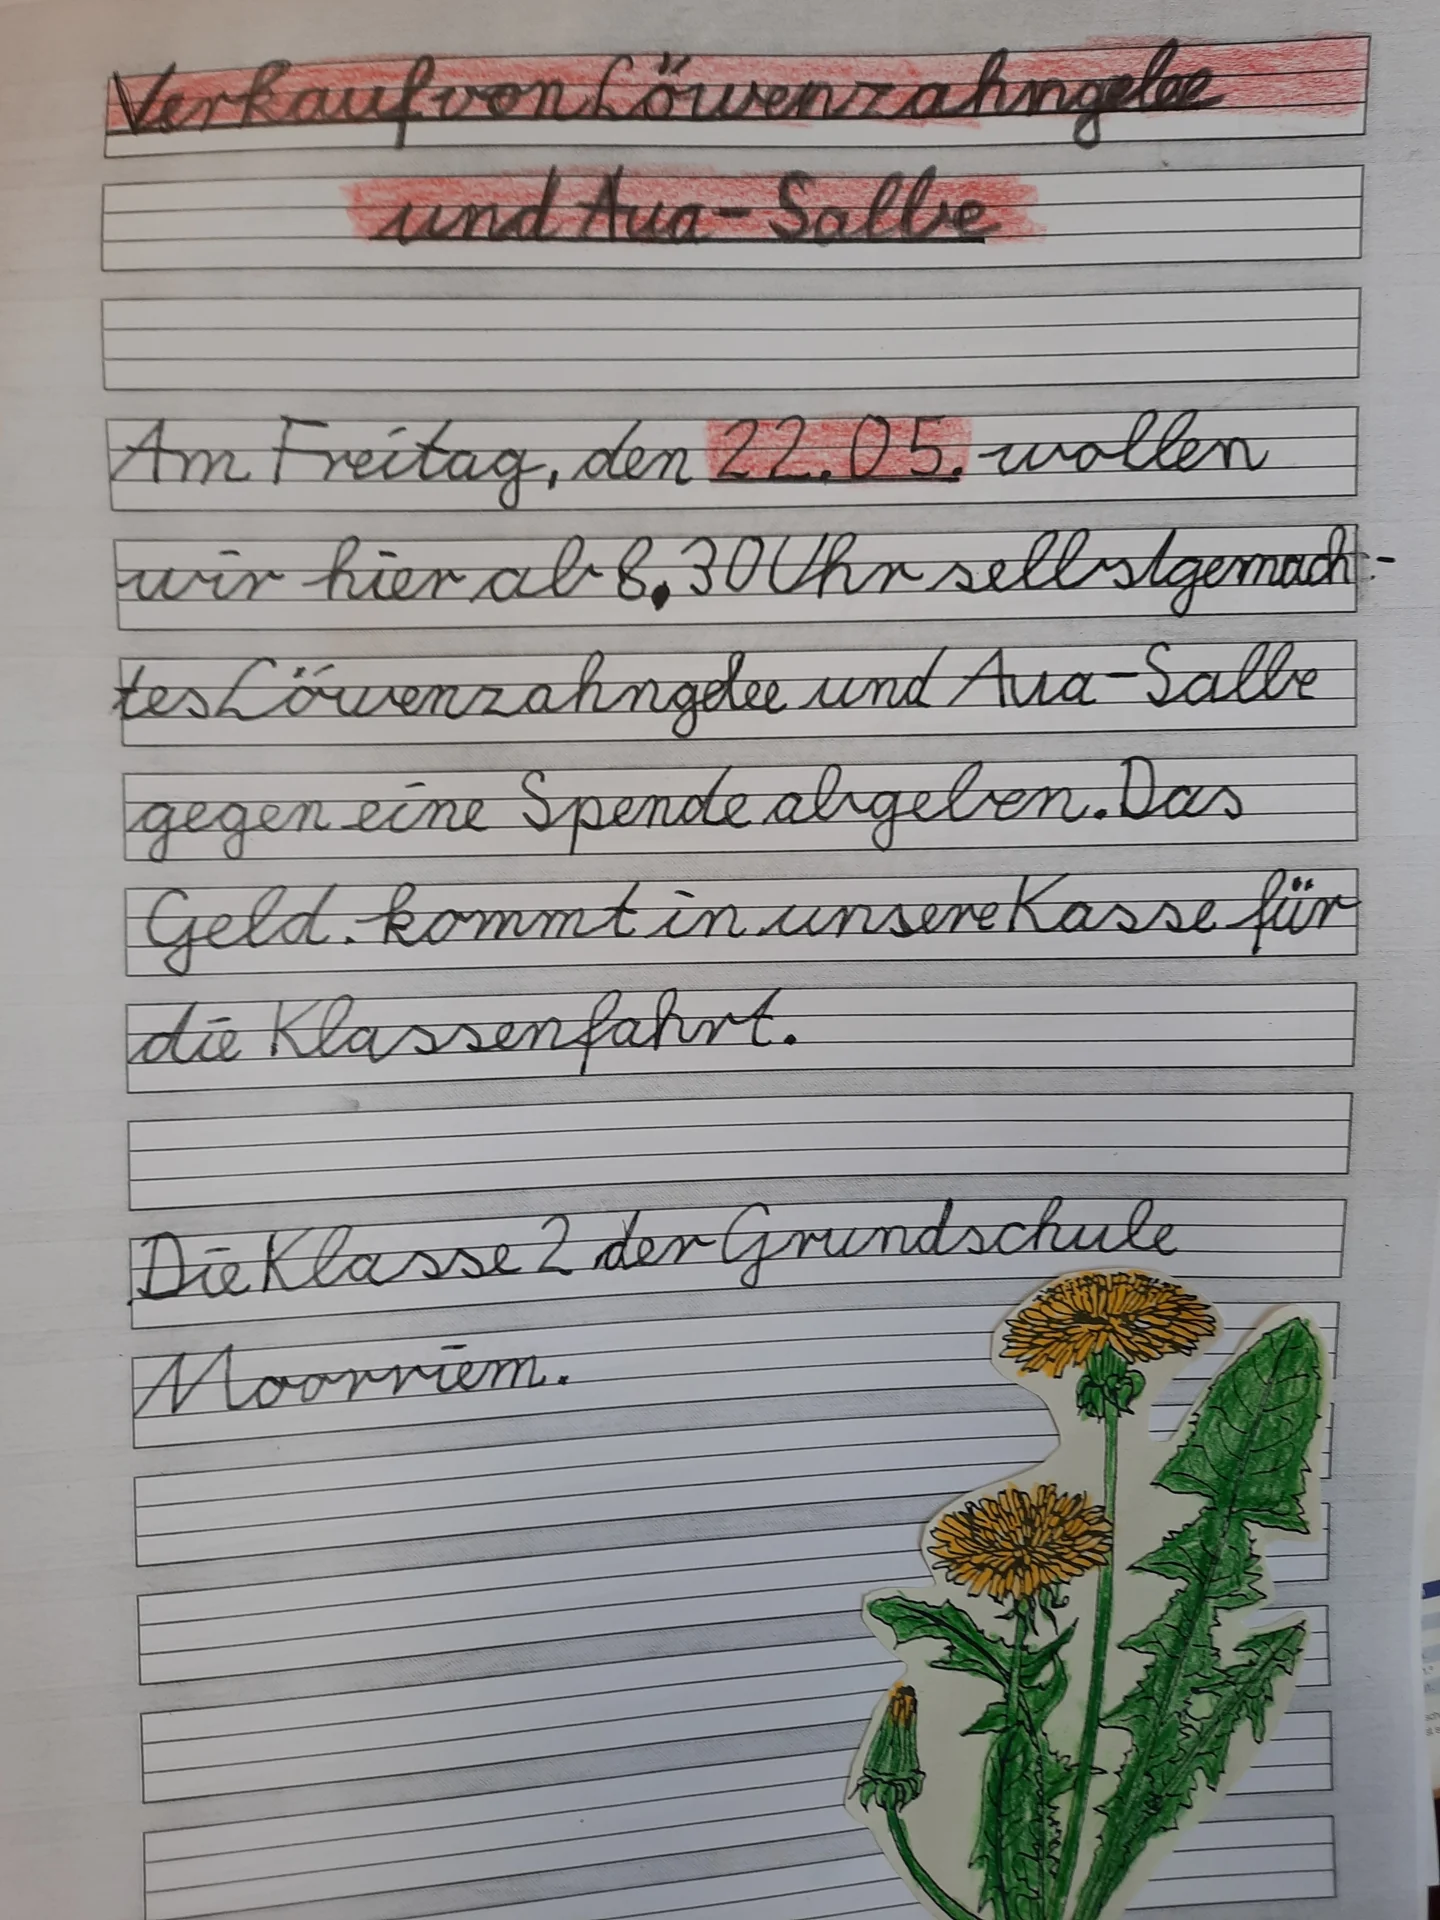 Verkauf von Löwenzahngelee
und Aua-Salbe
Am Freitag, den 22.05. wollen
wir hier ab 8.30 Uhr selbstgemach-
tes Löwenzahngelee und Aua-Salbe
gegen eine Spende abgeben. Das
Geld. kommt in unsere Kasse für
die Klassenfahrt.
Die Klasse 2 der Grundschule
Moorriem.